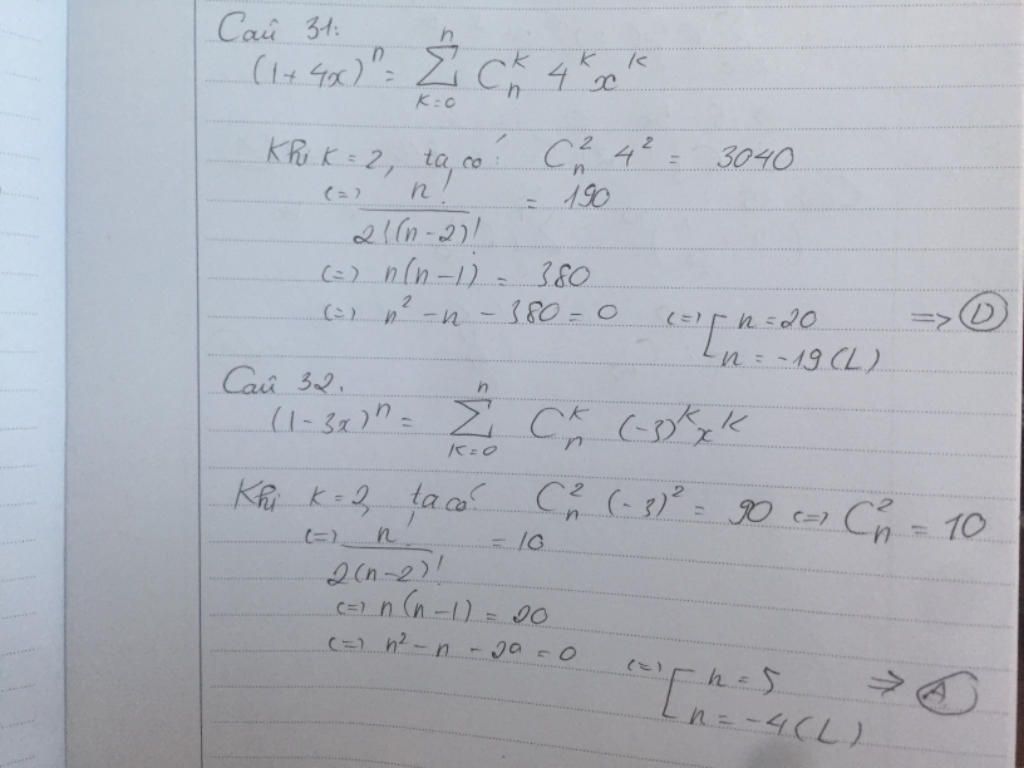 Câu 31:
(1+4x)^n = \sum_{k=0}^{n} C_n^k 4^k x^k
Khi k = 2, ta có: C_n^2 4^2 = 3040
(=) \frac{n!}{2!(n-2)!} = 190
(=) n(n-1) = 380
(=) n^2 - n - 380 = 0 (=) [ n = 20 => D
n = -19 (L)
Câu 32.
(1-3x)^n = \sum_{k=0}^{n} C_n^k (-3)^k x^k
Khi k = 2, ta có: C_n^2 (-3)^2 = 90 (=) C_n^2 = 10
(=) \frac{n!}{2(n-2)!} = 10
(=) n(n-1) = 20
(=) n^2 - n - 20 = 0 (=) [ n = 5 => A
n = -4 (L)